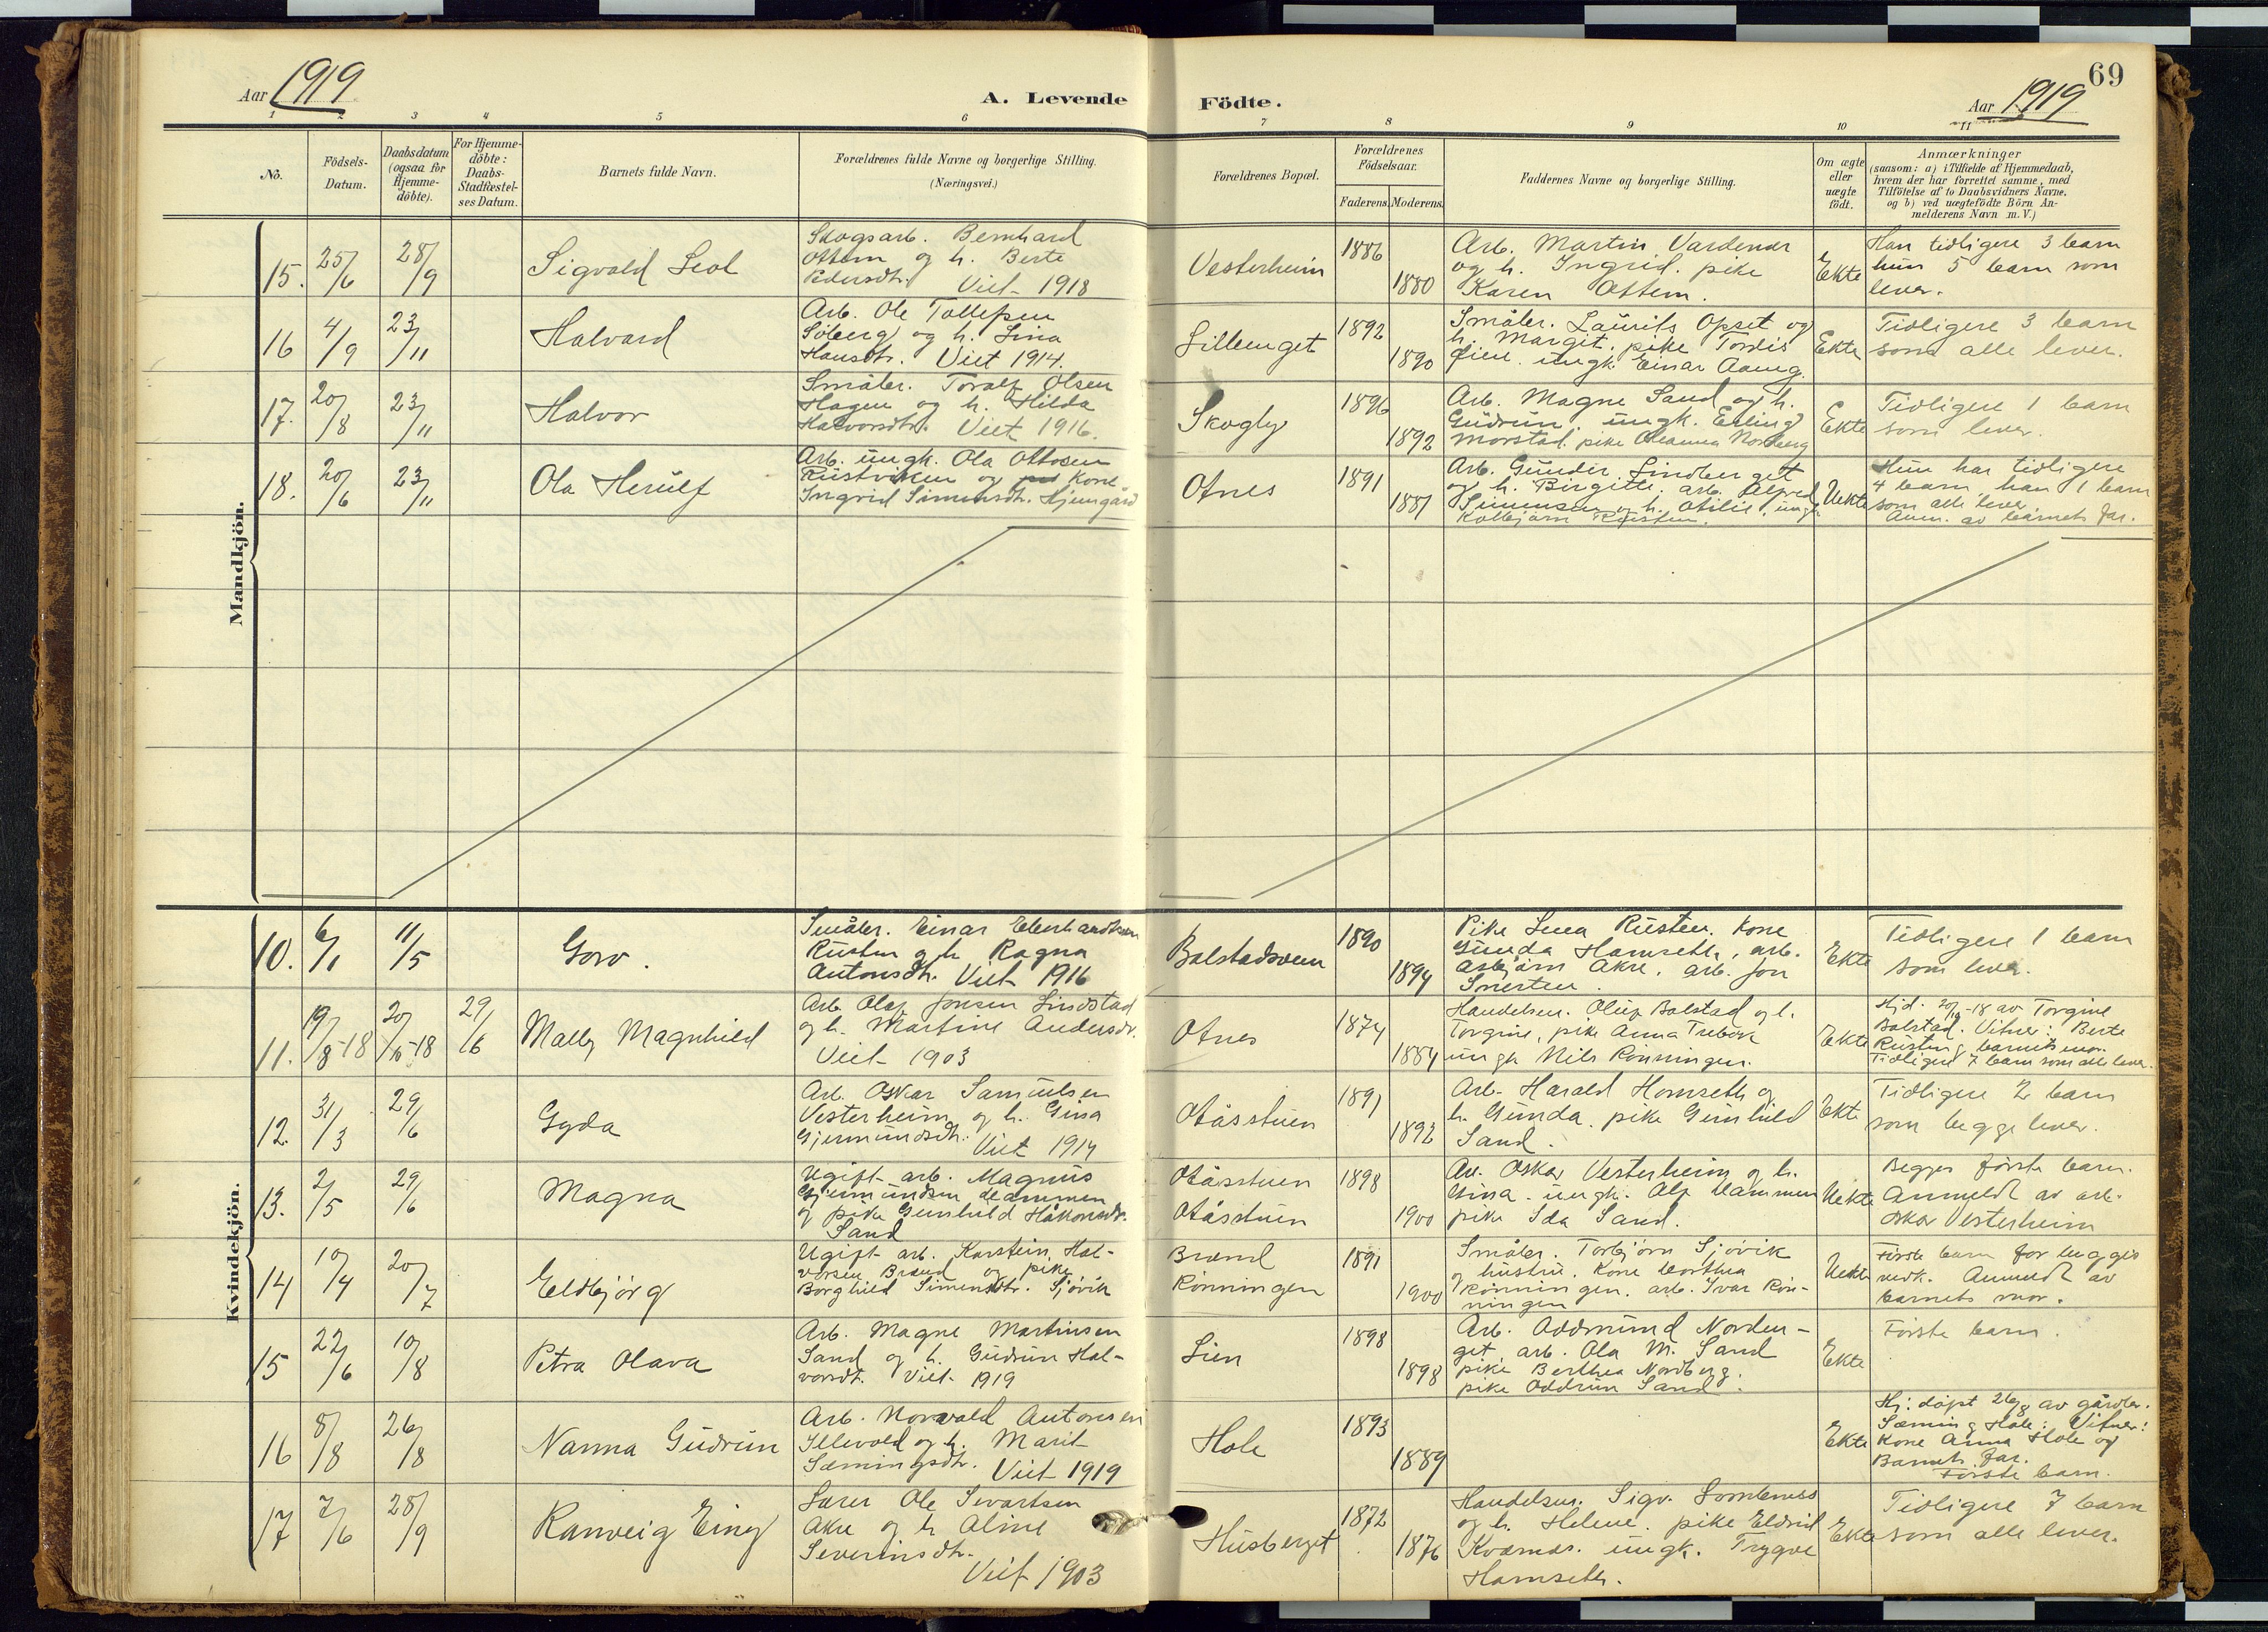 69
Aar 1919
A. Levende
Födte.
Aar 1919
1 2 3 4 5 6 7 8 9 10 11
No.
Födsels-Datum.
Daabsdatum (ogsaa for Hjemme-döbte).
For Hjemme-döbte: Daabs-Stadfæstel-ses Datum.
Barnets fulde Navn.
Forældrenes fulde Navne og borgerlige Stilling.
(Næringsvei.)
Forældrenes Bopæl.
Forældrenes Födselsaar.
Faderens. Moderens.
Faddernes Navne og borgerlige Stilling.
Om ægte eller uægte födt.
Anmærkninger
(saasom: a) i Tilfælde af Hjemmedaab,
hvem der har forrettet samme, med
Tilföielse af to Daabsvidners Navne.
og b) ved uægtefödte Börn An-
melderens Navn m. V.)
Mandkjön.
15. 25/6 28/9
Sigvald Leol
Skogsarb. Bernhard
Ottem og h. Berte
Pedersdtr. Viet 1918
Vesterheim
1886
1880
Arb. Martin Vardenær
og h. Ingrid. pike
Karen Ottem.
Ekte
Han tidligere 3 barn
hun 5 barn som
lever.
16 4/9 23/11
Halvard
Arb. Ole Tollefsen
Söberg og h. Lina
Hansdtr. Viet 1914.
Lillenget
1892
1890
Småbr. Laurits Opset og
h. Margit. pike Tordis
Öien. ungk. Einar Aaeng.
Ekte
Tidligere 3 barn
som alle lever.
17. 20/8 23/11
Halvor
Småbr. Toralf Olsen
Hagen og h. Hilda
Halvorsdtr. Viet 1916.
Skogly
1896
1892
Arb. Magne Sand og h.
Gudrun. ungk. Erling
Morstad. pike Oleanna Nordberg
Ekte
Tidligere 1 barn
som lever.
18. 20/6 23/11
Ola Herulf
Arb. ungk. Ola Ottosen
Rustviken og kone
Ingrid Simensdtr. Hjemgård
Otnes
1891
1881
Arb. Gunder Lindberget
og h. Birgitte. arb. Alfred
Simensen og h. Otilie. ungk.
Kolbjörn Rusten.
Uekte
Hun har tidligere
4 barn han 1 barn
som alle lever.
Anm. av barnets far.
Kvindekjön.
10. 6/1 11/5
Goro.
Småbr. Einar Eberhardtsen
Rusten og h. Ragna
Antonsdtr. Viet 1916
Bolstadsveen
1890
1894
Pike Lina Rusten. Kone
Gunda Hamseth, arb.
Asbjörn Akre, arb. Jon
Snerten.
Ekte
Tidligere 1 barn
som lever.
11. 19/8-18 20/10-18 29/6
Mally Magnhild
Arb. Olaf Jonsen Lindstad
og h. Martine Andersdtr.
Viet 1903
Otnes
1874
1884
Handelsm. Oluf Bolstad og h.
Torgine, pike Anna Trebön
ungk. Nils Rönningen.
Ekte
Hjd. 20/10-18 av Torgine
Bolstad. Vitner: Berte
Rusten og barnets mor.
Tidligere 7 barn som alle lever.
12. 31/3 29/6
Gyda
Arb. Oskar Samuelsen
Vesterheim og h. Gina
Gjermundsdtr. Viet 1914
Otåsstuen
1891
1892
Arb. Harald Homseth og
h. Gunda. pike Gunhild
Sand.
Ekte
Tidligere 2 barn
som begge lever.
13. 2/5 29/6
Magna
Ugift arb. Magnus
Gjermundsen Hammen
og pike Gunhild Håkonsdtr.
Sand
Otåsstuen
Otåsstuen
1898
1900
Arb. Oskar Vesterheim og h.
Gina. ungk. Alf Hammen
pike Ida Sand.
Uekte
Begges förste barn.
Anmeldt av arb.
Oskar Vesterheim
14 10/4 20/7
Eldbjörg
Ugift arb. Karstein Hal-
vorsen Brænd og pike
Borghild Simensdtr. Sjövik
Brænd
Rönningen
1891
1900
Småbr. Torbjörn Sjövik
og hustru. Kone Dorthea
Rönningen. arb. Ivar Rön-
ningen
Uekte
Förste barn for begges
vedk. Anmeldt av
barnets mor.
15 22/6 10/8
Petra Olava
Arb. Magne Martinsen
Sand og h. Gudrun Hal-
vorsdt. Viet 1919
Lien
1898
1898
Arb. Oddmund Norden-
get, arb. Ola M. Sand
pike Berthea Nordberg.
pike Oddrun Sand.
Ekte
Förste barn.
16 8/8 26/8
Nanna Gudrun
Arb. Norvald Antonsen
Illevold og h. Marit
Sæmingsdtr. Viet 1919
Hole
1893
1889
Ekte
Hj: döpt 26/8 av gårdbr.
Sæming Hole. Vitner:
Kone Anna Hole og
Barnets far.
Förste barn.
17 7/6 28/9
Ranveig Einy
Lærer Ole Sivartsen
Akre og h. Aline
Severinsdtr.
Viet 1903
Husberget
1872
1876
Handelsm. Sigv. Lombnæs
og h. Helene. pike Eldrid
Kværnæs. ungk. Trygve
Hamseth.
Ekte
Tidligere 7 barn
som alle lever.